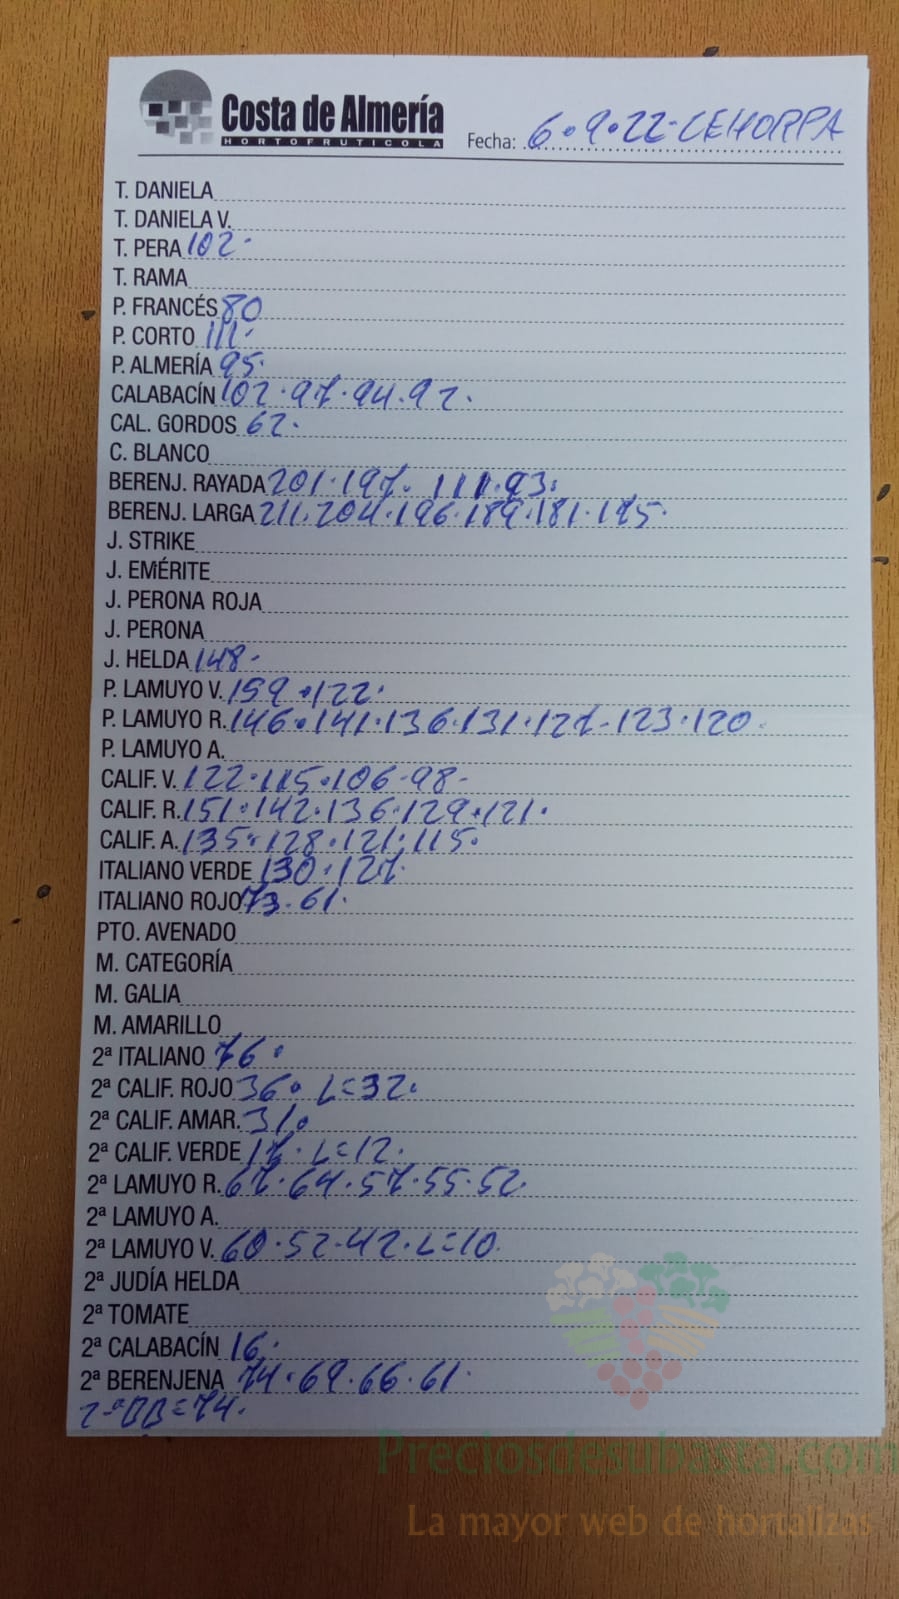 Costa de Almería
HORTOFRUTICOLA
Fecha: 6.9.22-CEHORPA
T. DANIELA
T. DANIELA V.
T. PERA 102.
T. RAMA
P. FRANCÉS 80
P. CORTO 111.
P. ALMERÍA 95.
CALABACÍN 102.97.94.92.
CAL. GORDOS 62.
C. BLANCO
BERENJ. RAYADA 201.197. 111.93.
BERENJ. LARGA 211.204.196.189.181.175.
J. STRIKE
J. EMÉRITE
J. PERONA ROJA
J. PERONA
J. HELDA 148-
P. LAMUYO V. 159.122.
P. LAMUYO R. 146.141.136.131.127-123.120.
P. LAMUYO A.
CALIF. V. 122.115.106-98-
CALIF. R. 151.142.136.129.121.
CALIF. A. 135.128.121.115.
ITALIANO VERDE 130.127.
ITALIANO ROJO 73.61.
PTO. AVENADO
M. CATEGORÍA
M. GALIA
M. AMARILLO
2ª ITALIANO 76.
2ª CALIF. ROJO 36. L=32.
2ª CALIF. AMAR. 31.
2ª CALIF. VERDE 17. L=12.
2ª LAMUYO R. 67.64.57.55.52.
2ª LAMUYO A.
2ª LAMUYO V. 60.52-42.L=10.
2ª JUDÍA HELDA
2ª TOMATE
2ª CALABACÍN 16.
2ª BERENJENA 74.69.66.61.
2ªBB=74.
Preciosdesubasta.com
La mayor web de hortalizas